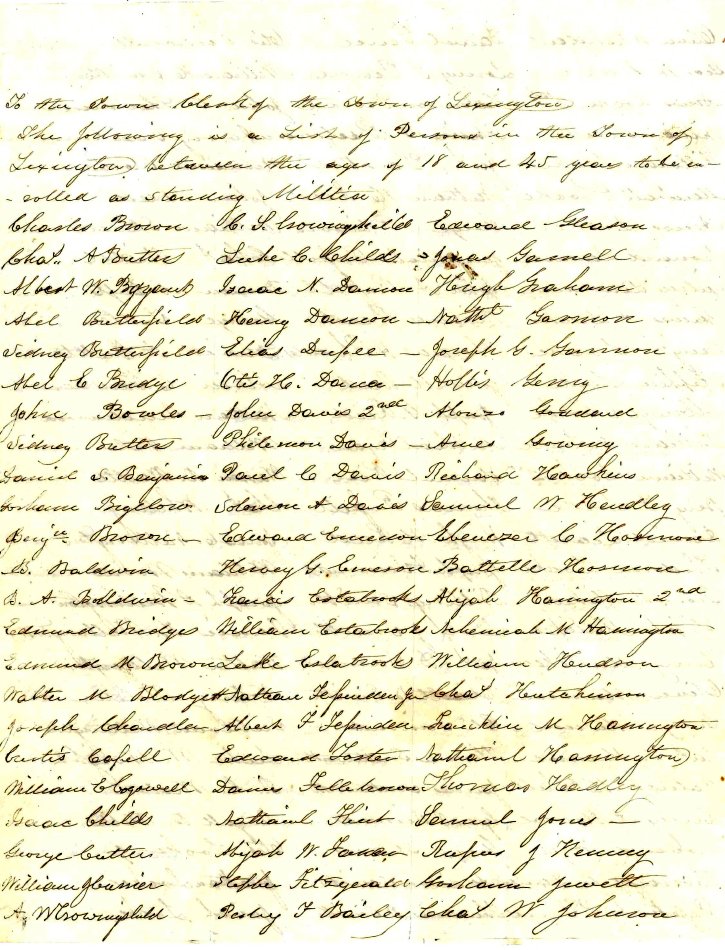 To the Town Clerk of the Town of Lexington
The following is a List of Persons in the Town of
Lexington between the ages of 18 and 45 years to be in-
-rolled as Standing Militia
Charles Brown C. S. Crowningshild Edward Gleason
Chas. A Butters Luke C. Childs Jonas Gamell
Albert W. Bryant Isaac N. Damon Hugh Graham
Abel Butterfield Henry Damon – Nathl Garmon
Sidney Butterfield Elias Dupee – Joseph G. Gammon
Abel E Bridge Otis H. Dana – Hollis Gerry
John Bowles – John Davis 2nd Alonzo Goddard
Sidney Butters Philemon Davis – Amos Gowing
Daniel S. Benjamin Paul C Davis Richard Hawkins
Gorham Bigelow Solomon A Davis Samuel W. Hendley
Benjn Brown – Edward Emerson Ebenezer C Hosmore
Baldwin Hervey G. Emerson Battelle Hosmore
B. A. Balldwin – Francis Estabrooks Abijah Harrington 2nd
Edmund Bridges William Estabrooks Nehemiah M Harrington
Edmund M Brown Luke Estabrooks William Hudson
Walter M Blodgett Nathan Fessenden Jr Chas Hutchinson
Joseph Chandler Albert F Fessenden Franklin M Harrington
Curtis Capell Edward Foster Nathanil Harrington
William E Cogswell Daines Fillebrown Thomas Hadley
Isaac Childs Nathanil Flint Samuel Jones –
George Cutters Abijah W. Rufus J Kenney
William J Currier Stephen Fitzgerald Gorham Jewett
A. W Crowningshild F Bailey Chas W Johnson